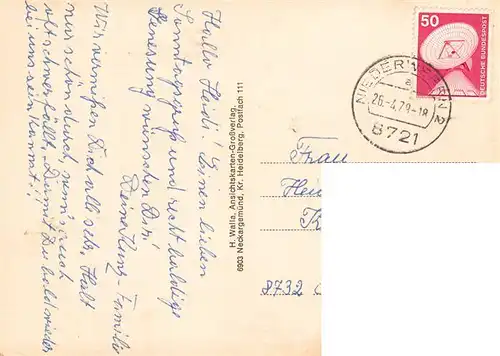 Hallo Heidi! Einen lieben
Sonntagsgruß und recht baldige
Genesung wünschen Dir
Familie
Wir vermißen Dich alle sehr. Halt
nur schön durch, wenn's auch
oft schwer fällt. Damit Du bald wieder
bei uns sein kannst!
H. Walla, Ansichtskarten-Großverlag,
6903 Neckargemünd, Kr. Heidelberg, Postfach 111
50
DEUTSCHE BUNDESPOST
NIEDERWERRN 2
a
26.-4.79-18
8721
Frau
8732